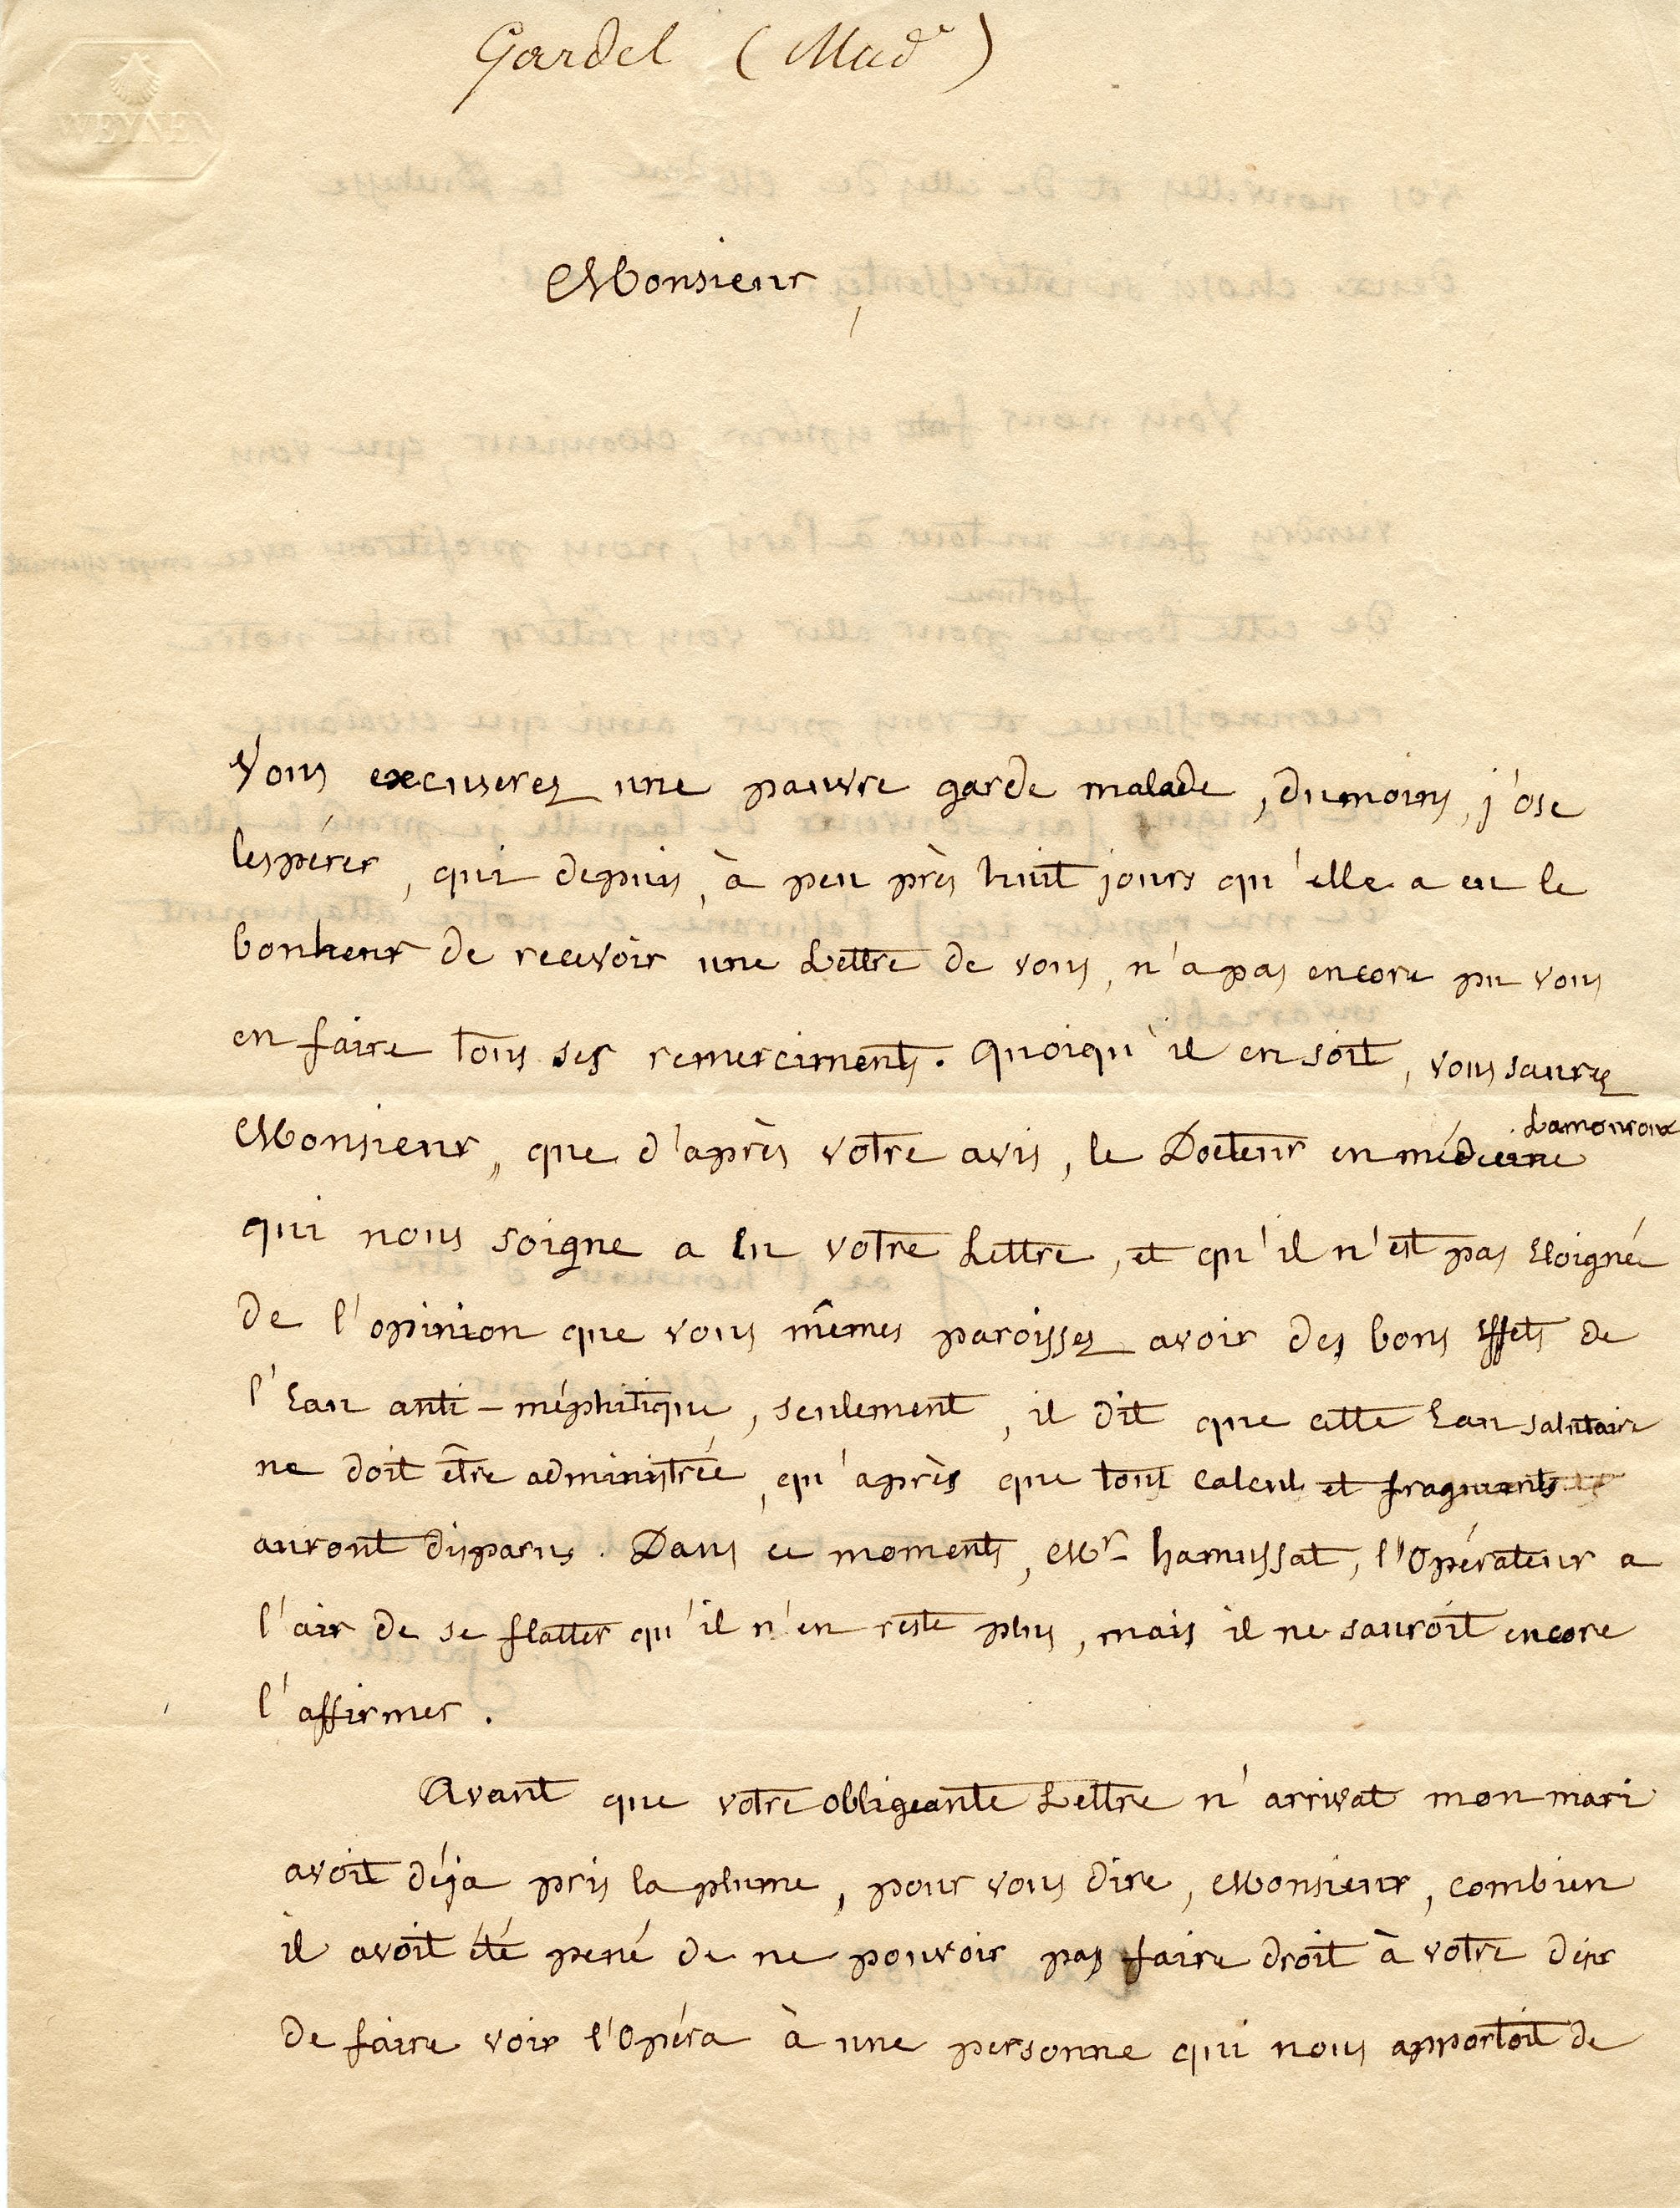 Gardel (Mad^e)
WEYNEN
Monsieur,
Vous excuserez une pauvre garde malade, dumoins, j'ose
lespérer, qui depuis, à peu près huit jours qu'elle a eu le
bonheur de recevoir une Lettre de vous, n'a pas encore pu vous
en faire tous ses remerciments. quoiqu'il en soit, vous saurez
Monsieur, que d'après votre avis, le Docteur en médecine Lamouroux
qui nous soigne a lu votre Lettre, et qu'il n'est pas Eloigné
de l'opinion que vous mêmes paroissez avoir des bons Effets de
l'Eau anti-méphitique, seulement, il dit que cette Eau salutaire
ne doit être administrée, qu'après que tout calculs et fragments
auront disparus. Dans ce moments, Mr. hamussat, l'Opérateur a
l'air de se flatter qu'il n'en reste plus, mais il ne sauroit encore
l'affirmer.
Avant que votre obligeante Lettre n'arrivat mon mari
avoit déja pris la plume, pour vous dire, Monsieur, combien
il avoit été pené de ne pouvoir pas faire droit à votre désir
de faire voir l'Opéra à une personne qui nous apportoit de